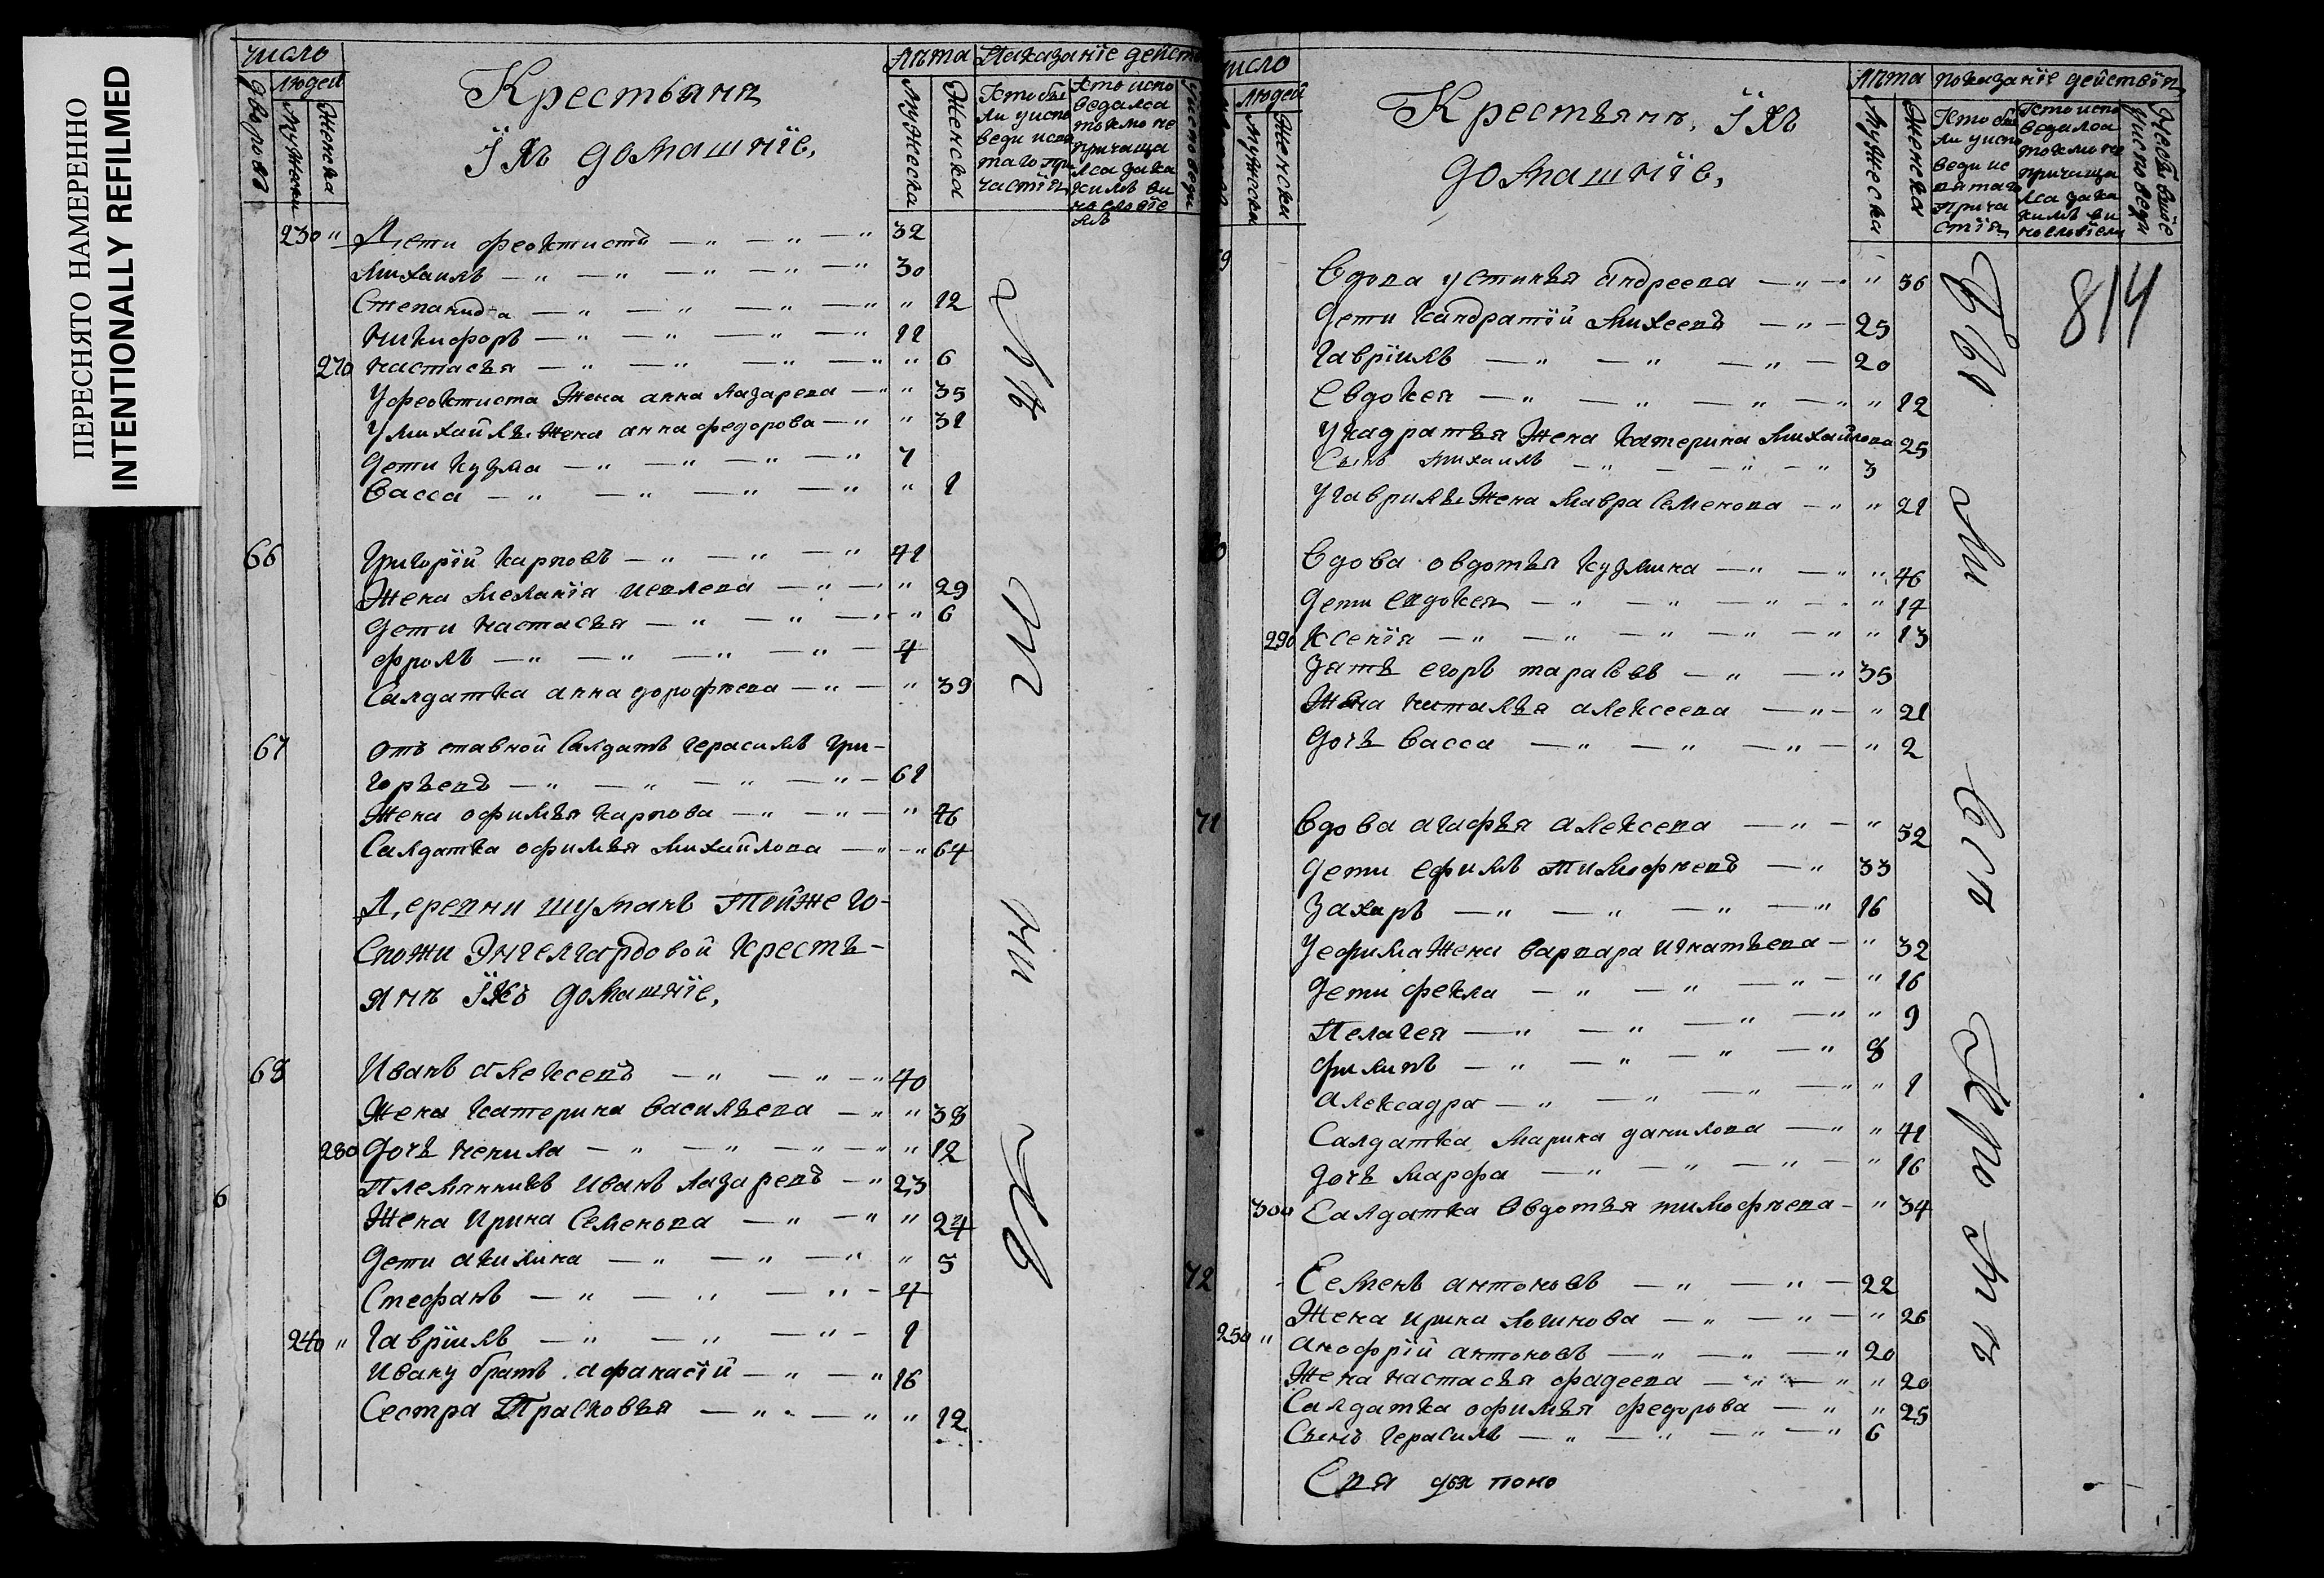 ПЕРЕСНЯТО НАМЕРЕННО
INTENTIONALLY REFILMED
число
дворовъ
людей
мужеска
женска
Крестьяня
Їхъ домашніе,
лѣта
мужеска
женска
Показаніе дейст
Кто бы
ли уиспо
веди
Кто испо
ведался
токмо не
прича
230 " Дети феоктистъ — " — " — " 32
Михаилъ — " — " — " — " — " 30
Степанида — " — " — " — " " 12
Никифоръ — " — " — " — " 11
270 настасья — " — " — " — " " 6
Уфеоктиста Жена анна лазарева — " " 35
Умихайлы Жена анна федорова — " " 31
Дети кузма — " — " — " — " 7
Васса — " — " — " — " " 1
66 Григорїй карповъ — " — " — " 41
Жена меланїя иевлева — " — " " 29
Дети настасья — " — " — " " 6
фролъ — " — " — " — " — 4
Салдатка анна дорофѣева — " — " 39
67 отъ ставной Салдатъ герасимъ гри-
горьевъ — " — " — " — " — 61
Жена офимья карпова — " — " — " 46
Салдатка офимья михайлова — " — " 64
Деревни шуманъ тойже го-
спожи Энгелгардовой кресть-
янъ Їхъ домашнїе,
68 Иванъ алексеевъ — " — " — " 40
Жена катерина васильева — " " 38
280 Дочь ненила — " — " — " — " " 12
6 Племянникъ иванъ лазаревъ — " 23
Жена ирина Семенова — " — " " 24
Дети акилина — " — " — " " 5
Стефанъ — " — " — " — 4
240 " гаврїилъ — " — " — " — 1
Ивану братъ афанасїй — " — " 16
Сестра Прасковья — " — " " 12
число
людей
мужеска
женска
Крестьянъ, Їхъ
домашнїе,
лѣта
мужеска
женска
показанїе действїя
Кто бы
ли уиспо
веди
Кто испо
ведался
токмо не
прича
уисповеди
814
9 Вдова устинья андреева — " — " 56
Дети кандратїй михеевъ — " — 25
гаврїилъ — " — " — " — 20
Евдокея — " — " — " — " " 12
Укадратья Жена катерина михайлова 25
Сынъ михаилъ — " — " — " 3
Угаврилы Жена мавра Семенова — " " 21
Вдова овдотья кузмина — " — " " 46
Дети евдокея — " — " — " — " " 17
290 Ксенїя — " — " — " — " — " " 13
Зять егоръ тарасовъ — " — " 35
Жена наталья алексеева — " — " 21
Дочь васса — " — " — " — " 2
71 Вдова агафья алексева — " — " 52
Дети ефимъ тимофѣевъ — " 33
Захаръ — " — " — " — " 16
Уефима Жена варвара игнатьева — " 32
Дети фекла — " — " — " — " 16
Пелагея — " — " — " — " " 9
филипъ — " — " — " — " 8
алексадра — " — " — " — " " 1
Салдатка марина данилова — " " 41
Дочь марфа — " — " — " — " 16
300 Салдатка Овдотья тимофѣева — " 34
72 Семенъ антоновъ — " — " — 22
Жена ирина логинова — " — " — " 26
250 " анофрїй антоновъ — " — " — " 20
Жена настасья фадеева — " — " " 20
Салдатка офимья федорова — " " 25
Сынъ герасимъ — " — " — " — " 6